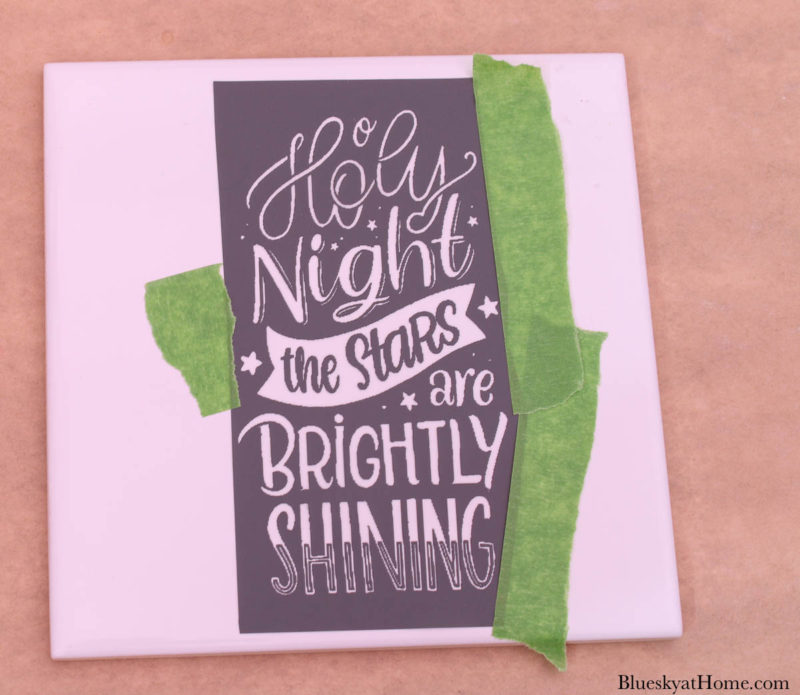 O Holy
Night
the StaRS
are
BRiGHTLY
SHINING
BlueskyatHome.com